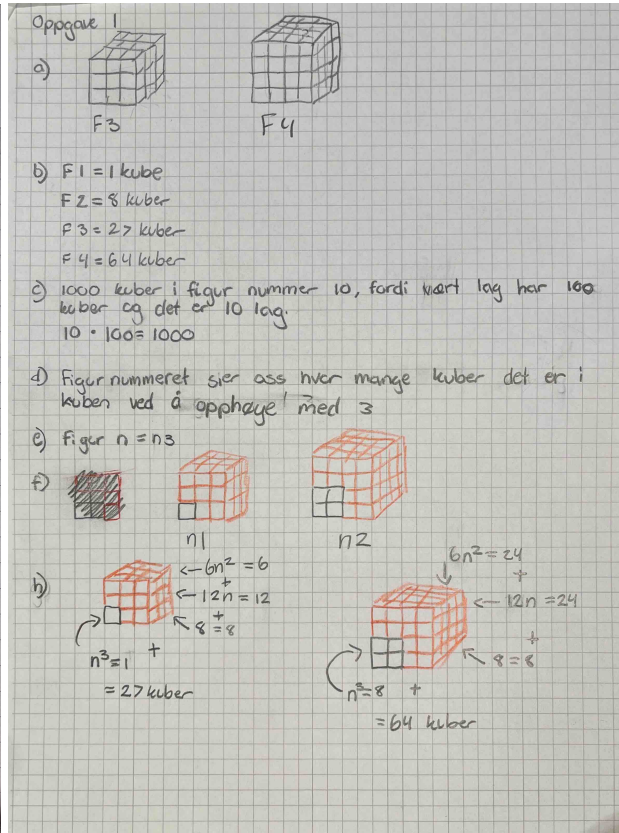 Oppgave 1
a)
F3 F4
b) F1 = 1 kube
F2 = 8 kuber
F3 = 27 kuber
F4 = 64 kuber
c) 1000 kuber i figur nummer 10, fordi hvert lag har 100
kuber og det er 10 lag.
10 · 100 = 1000
d) Figurnummeret sier oss hvor mange kuber det er i
kuben ved å opphøye med 3
e) figur n = n3
f)
n1 n2
h)
←6n² = 6
+
←12n = 12
+
8 = 8
+
n³=1
= 27 kuber
6n² = 24
+
← 12n = 24
+
8 = 8
+
n³=8
= 64 kuber